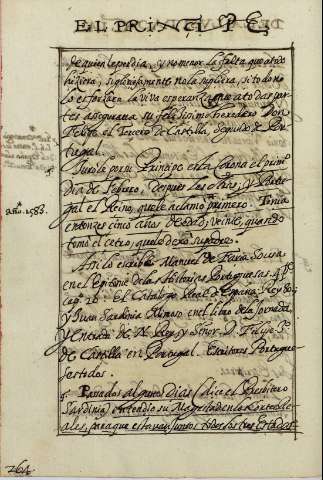 EL PRINCIPE
de quien le perdia, y no menor la falta que a todo
hiziera, si gloriosamente no la supliera, si todo no
lo esforzara la viva esperanza que a todas par
tes asegurava su felicissimo heredero Don
Felipe el Tercero de Castilla, segundo de Por
tugal.
Juróle por su Principe en la Corona el prim.º
dia de Febrero, despues los años, y Portu
gal el Reino, que le aclamó primero. Tenia
año. 1583.
entonzes cinco años de edad; veinte, quando
tomó el cetro, que le dexó su padre.
Asi lo escribe Manuel de Faria Sousa
en el Epitome de las Historias Portuguesas. 4. P.
cap. 2. El Catalogo Real de España, Rey 80;
y Juan Sardinia Mimoso en el libro de la Jornada,
y Entrada de N. Rey, y Señor D. Felipe 3.º
de Castilla en Portugal. Escritores Portugue
ses todos.
Pasados algunos Dias (dice el Presbitero
Sardinia) entendio su Magestad en las Cortes Re
ales, para que estavan juntos todos los tres Estados
264